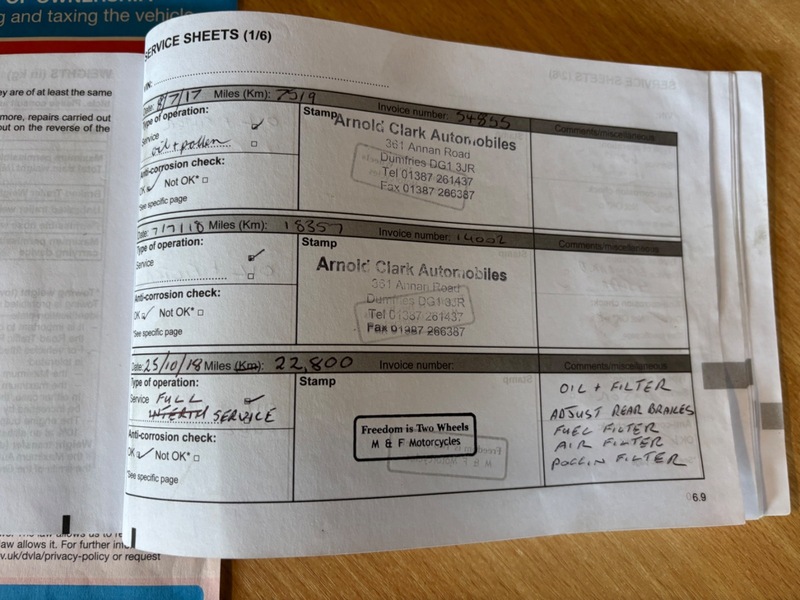 g and taxing the vehicle
ey are of at least the same
more, repairs carried out
out on the reverse of the
SERVICE SHEETS (1/6)
VIN:
Date: 8/7/17 Miles (Km): 7519 Invoice number: 54855
Type of operation:
Service
oil + pollen
Anti-corrosion check:
OK Not OK*
*See specific page
Stamp
Arnold Clark Automobiles
361 Annan Road
Dumfries DG1 3JR
Tel 01387 261437
Fax 01387 266387
Comments/miscellaneous
Date: 7/7/18 Miles (Km): 18357 Invoice number: 14002
Type of operation:
Service
Anti-corrosion check:
OK Not OK*
*See specific page
Stamp
Arnold Clark Automobiles
361 Annan Road
Dumfries DG1 3JR
Tel 01387 261437
Fax 01387 266387
Comments/miscellaneous
Date: 25/10/18 Miles (Km): 22,800 Invoice number:
Type of operation:
Service FULL
INTERIM SERVICE
Anti-corrosion check:
OK Not OK*
*See specific page
Stamp
Freedom is Two Wheels
M & F Motorcycles
Comments/miscellaneous
OIL + FILTER
ADJUST REAR BRAKES
FUEL FILTER
AIR FILTER
POLLIN FILTER
6.9
law allows it. For further
v.uk/dvla/privacy-policy or request